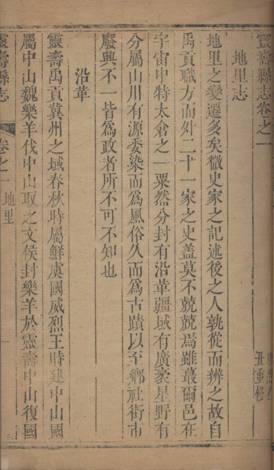 靈壽縣志卷之一
地里志
地里之變遷多矣微史家之記述後之人孰從而辨之故自
禹貢職方而外二十一家之史蓋莫不兢兢焉雖蕞爾邑在
宇宙中特太倉之一粟然分封有沿革疆域有廣袤星野有
分屬山川有源委染而爲風俗久而爲古蹟以至鄉社街市
廢興不一皆爲政者所不可不知也
沿革
靈壽禹貢冀州之域春秋時屬鮮虞國威烈王時建中山國
屬中山魏樂羊伐中山取之文侯封樂羊於靈壽中山復國
靈壽縣志
卷之一
地里